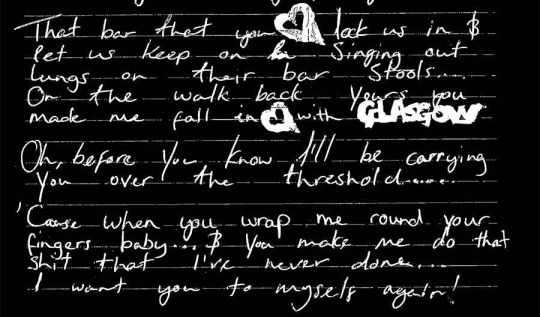 That bar that you ♡ lock us in &
let us keep on singing out
lungs on their bar stools....
On the walk back yours you
made me fall in ♡ with GLASGOW
Oh, before you know I'll be carrying
you over the threshold......
'Cause when you wrap me round your
fingers baby... & you make me do that
shit that I've never done....
I want you to myself again!